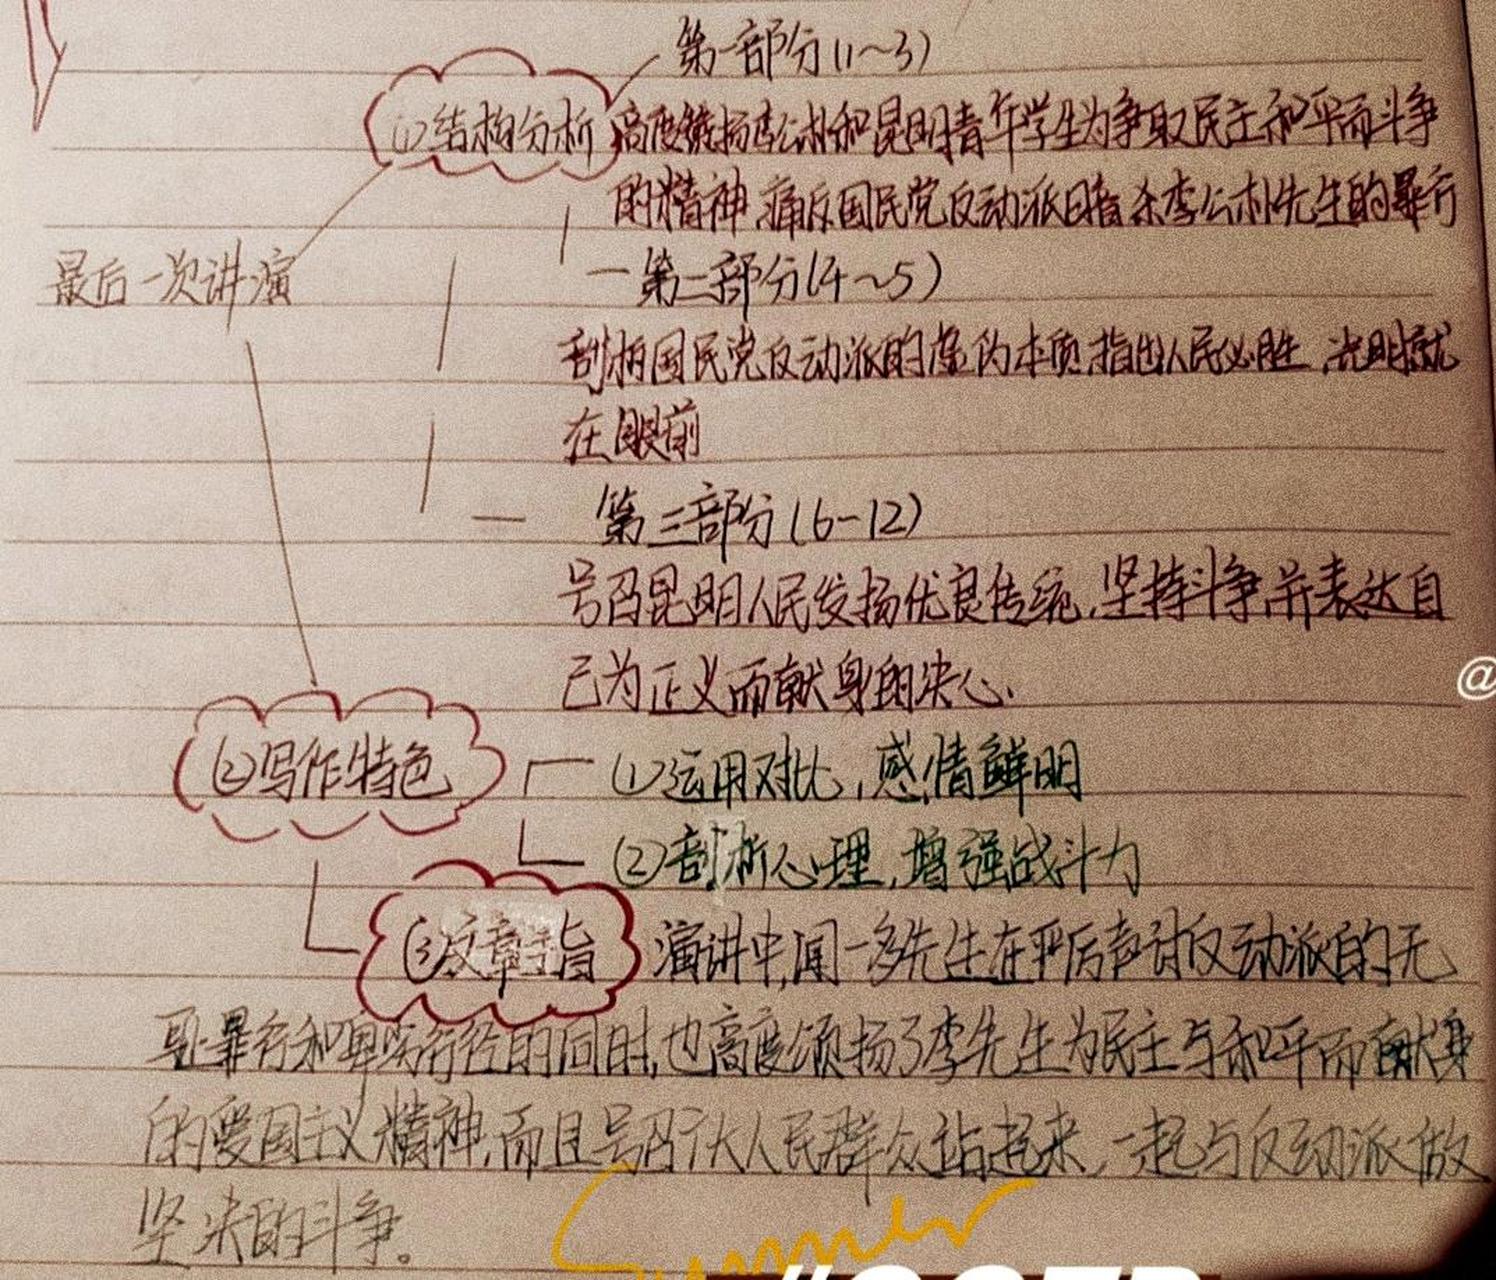 第一部分(1~3)
(1)结构分析 高度赞扬李公朴和昆明青年学生为争取民主和平而斗争
的精神,痛斥国民党反动派暗杀李公朴先生的暴行
最后一次讲演
第二部分(4~5)
刮柄国民党反动派的虚伪本质,指出人民必胜,光明就
在眼前
第三部分(6-12)
号召昆明人民发扬优良传统,坚持斗争,并表达自
己为正义而献身的决心.
(2)写作特色
(1)运用对比,感情鲜明
(2)剖析心理,增强战斗力
(3)文章主旨 演讲中,闻一多先生在严厉声讨反动派的无
耻罪行和卑劣行径的同时,也高度颂扬了李先生为民主与和平而献身
的爱国主义精神,而且号召广大人民群众站起来,一起与反动派做
坚决的斗争。
Summer
@